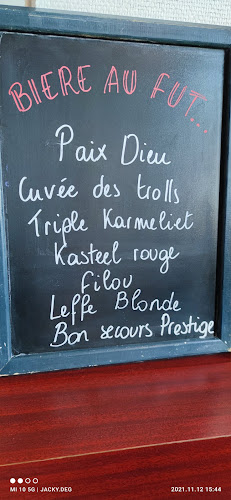 BIERE AU FUT...
Paix Dieu
Cuvée des trolls
Triple Karmeliet
Kasteel rouge
Filou
Leffe Blonde
Bon secours Prestige
MI 10 5G | JACKY.DEG
2021.11.12 15:44